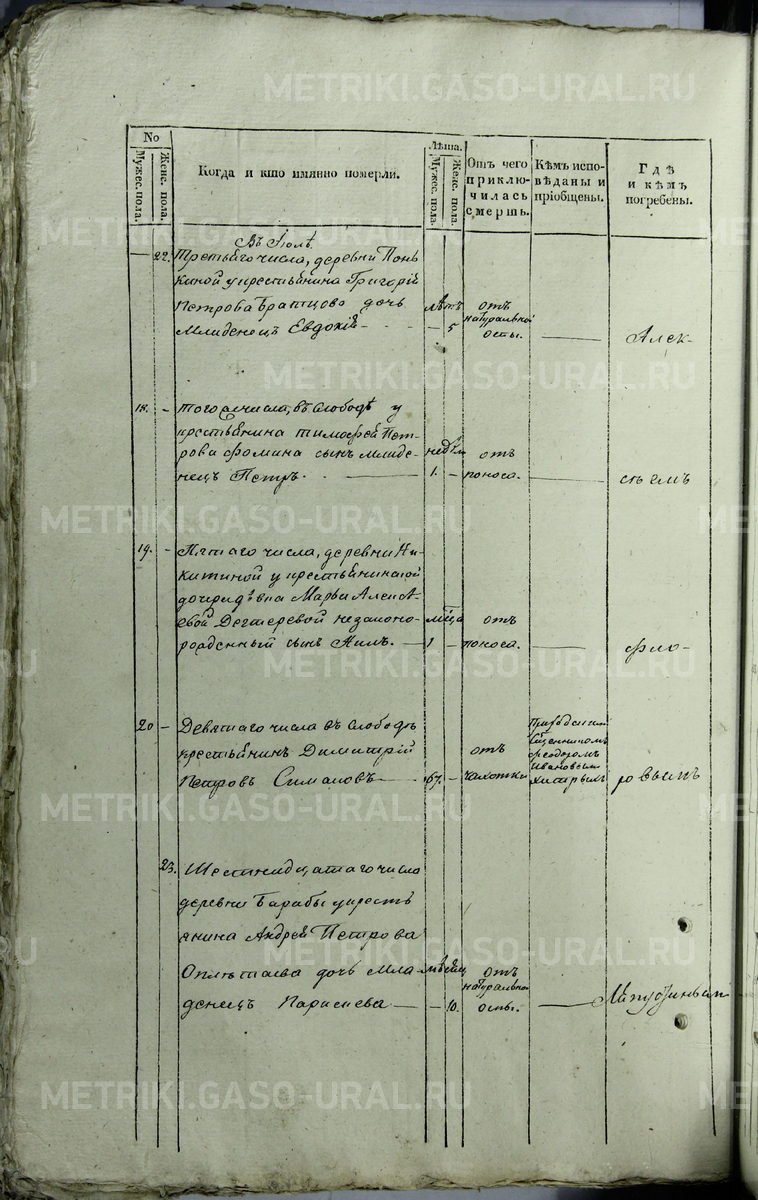 METRIKI.GASO-URAL.RU
No
Мужес. пола.
Женс. пола.
Когда и кто имянно померли.
Лѣта.
Мужес. пола.
Женс. пола.
Отъ чего приключилась смерть.
Кѣмъ исповѣданы и пріобщены.
Гдѣ и кѣмъ погребены.
Въ Іюлѣ
— 22. Третьяго числа, деревни Понь
киной у крестьянина Григорій
Петрова Братцова дочь
младенецъ Евдокія
лѣтъ
— 5
отъ
натуральной
оспы.
Алек-
18. — того числа, въ слободѣ у
крестьянина Тимофей Пет-
рова Фомина сынъ младе-
нецъ Петръ.
недѣли
1. —
отъ
поноса.
сѣемъ
19. — Пятаго числа, деревни Ни-
китиной у крестьянинской
Марьи Алексѣ-
евой Дегтеревой незаконо-
рожденный сынъ Нилъ.
мѣца
1 —
отъ
поноса.
Фло-
20 — Девятаго числа въ слободѣ
крестьянинъ Димитрій
Петровъ Симановъ
67. —
отъ
чахотки
Священникомъ
Феодоромъ
Ивановымъ
Хитрымъ
ровымъ
23. Шестнидцатаго числа
деревни Барабы у крестъ
янина Андрей Петрова
Оплѣтаева дочь мла-
денецъ Параскева
мѣсяц
— 10.
отъ
натуральной
оспы.
Лапустинымъ